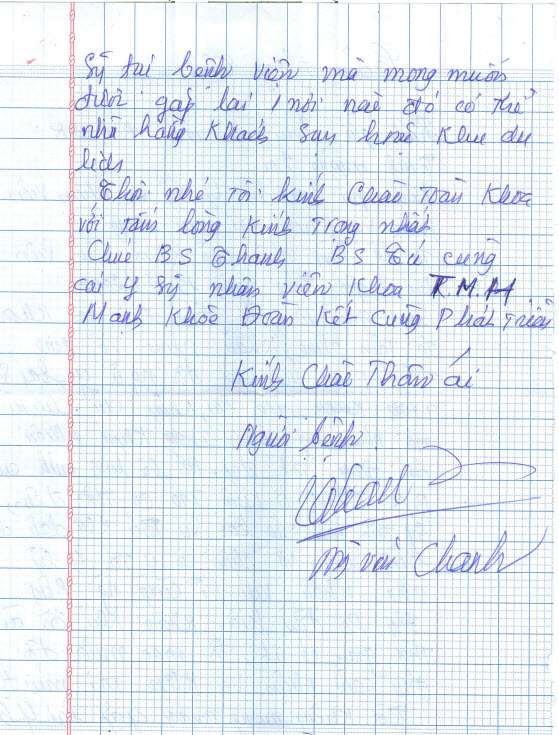 Sỹ tại bệnh viện mà mong muốn
được gặp lại 1 nơi nào đó có thể
nhà hàng Khách sạn hoặc Khu du
lịch
Thôi nhé tôi kính Chào toàn Khoa
với tấm lòng Kính trọng nhất
Chúc BS Thanh BS Tú cùng
các y Sỹ nhân viên Khoa T.M.H
Mạnh Khoẻ Đoàn Kết Cùng Phát Triển
Kính Chào Thân ái
Người bệnh
văn Chanh